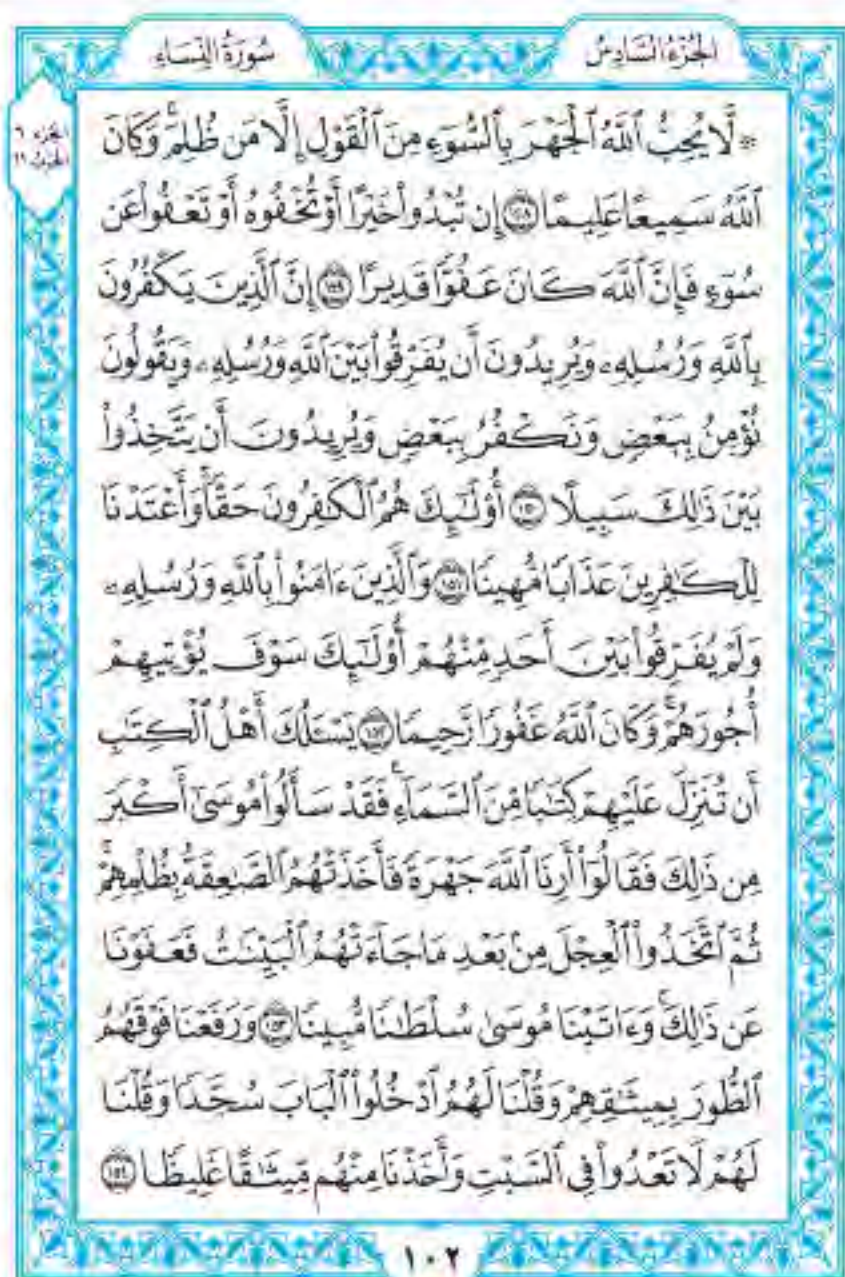 الجزء السادس
سورة النساء
الجزء ٦
الحزب ١١
۞ لَّا يُحِبُّ ٱللَّهُ ٱلْجَهْرَ بِٱلسُّوٓءِ مِنَ ٱلْقَوْلِ إِلَّا مَن ظُلِمَۚ وَكَانَ
ٱللَّهُ سَمِيعًا عَلِيمًا ١٤٨ إِن تُبْدُوا۟ خَيْرًا أَوْ تُخْفُوهُ أَوْ تَعْفُوا۟ عَن
سُوٓءٍ فَإِنَّ ٱللَّهَ كَانَ عَفُوًّا قَدِيرًا ١٤٩ إِنَّ ٱلَّذِينَ يَكْفُرُونَ
بِٱللَّهِ وَرُسُلِهِۦ وَيُرِيدُونَ أَن يُفَرِّقُوا۟ بَيْنَ ٱللَّهِ وَرُسُلِهِۦ وَيَقُولُونَ
نُؤْمِنُ بِبَعْضٍ وَنَكْفُرُ بِبَعْضٍ وَيُرِيدُونَ أَن يَتَّخِذُوا۟
بَيْنَ ذَٰلِكَ سَبِيلًا ١٥٠ أُو۟لَٰٓئِكَ هُمُ ٱلْكَٰفِرُونَ حَقًّاۚ وَأَعْتَدْنَا
لِلْكَٰفِرِينَ عَذَابًا مُّهِينًا ١٥١ وَٱلَّذِينَ ءَامَنُوا۟ بِٱللَّهِ وَرُسُلِهِۦ
وَلَمْ يُفَرِّقُوا۟ بَيْنَ أَحَدٍ مِّنْهُمْ أُو۟لَٰٓئِكَ سَوْفَ يُؤْتِيهِمْ
أُجُورَهُمْۚ وَكَانَ ٱللَّهُ غَفُورًا رَّحِيمًا ١٥٢ يَسْـَٔلُكَ أَهْلُ ٱلْكِتَٰبِ
أَن تُنَزِّلَ عَلَيْهِمْ كِتَٰبًا مِّنَ ٱلسَّمَآءِۚ فَقَدْ سَأَلُوا۟ مُوسَىٰٓ أَكْبَرَ
مِن ذَٰلِكَ فَقَالُوٓا۟ أَرِنَا ٱللَّهَ جَهْرَةً فَأَخَذَتْهُمُ ٱلصَّٰعِقَةُ بِظُلْمِهِمْۚ
ثُمَّ ٱتَّخَذُوا۟ ٱلْعِجْلَ مِنۢ بَعْدِ مَا جَآءَتْهُمُ ٱلْبَيِّنَٰتُ فَعَفَوْنَا
عَن ذَٰلِكَۚ وَءَاتَيْنَا مُوسَىٰ سُلْطَٰنًا مُّبِينًا ١٥٣ وَرَفَعْنَا فَوْقَهُمُ
ٱلطُّورَ بِمِيثَٰقِهِمْ وَقُلْنَا لَهُمُ ٱدْخُلُوا۟ ٱلْبَابَ سُجَّدًا وَقُلْنَا
لَهُمْ لَا تَعْدُوا۟ فِى ٱلسَّبْتِ وَأَخَذْنَا مِنْهُم مِّيثَٰقًا غَلِيظًا ١٥٤
١٠٢